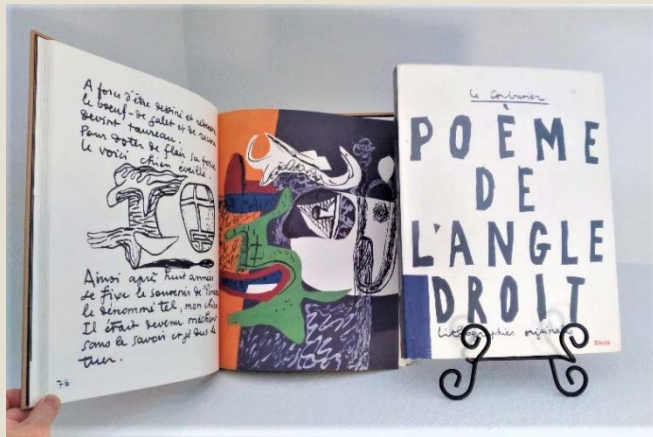 A force d'être dessiné et redessiné
le bœuf-de galet et de racine
devint taureau.
Pour doter de flair sa force
le voici chien éveillé.
Ainsi après huit années
se fixe le souvenir de
le dénommé tel, mon chien
Il était devenu méchant
sans le savoir et je dus le
tuer.
76
Le Corbusier
POEME
DE
L'ANGLE
DROIT
lithographies originales
Electa